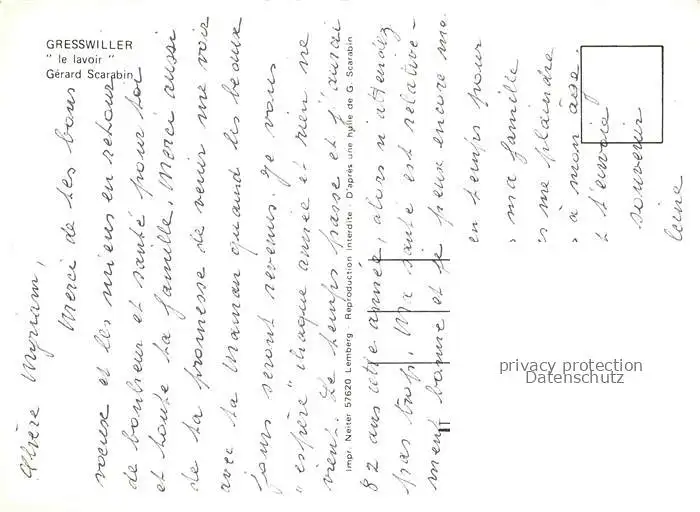 GRESSWILLER
" le lavoir "
Gérard Scarabin
Chère Myriam,
Merci de tes bons
voeux et les miens en retour
de bonheur et santé pour toi
et toute ta famille. Merci aussi
de ta promesse de venir me voir
avec ta Maman quand les beaux
jours seront revenus. Je vous
"espère" chaque année et rien ne
vient. Le temps passe et j'aurai
82 ans cette année, alors n'attendez
pas trop. Ma santé est relative-
ment bonne et je peux encore
en temps pour
ma famille
me plaindre
à mon
t'envoie
souvenir
Impr. Neiter 57620 Lemberg - Reproduction Interdite - D'après une huile de G. Scarabin
privacy protection
Datenschutz